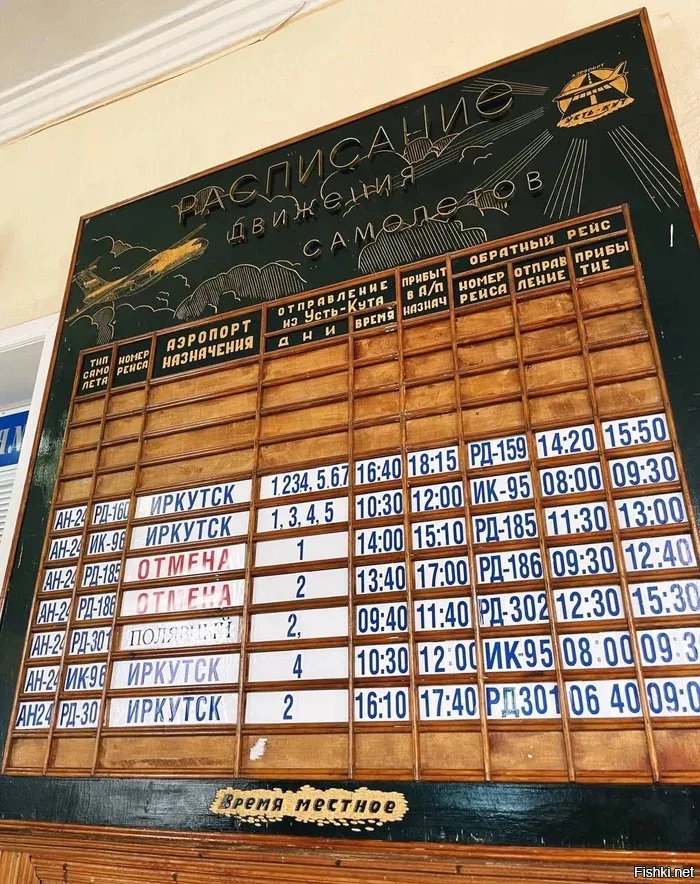 АЭРОПОРТ
УСТЬ-КУТ
РАСПИСАНИЕ
ДВИЖЕНИЯ
САМОЛЕТОВ
ТИП САМО ЛЕТА НОМЕР РЕЙСА АЭРОПОРТ НАЗНАЧЕНИЯ ОТПРАВЛЕНИЕ ИЗ УСТЬ-КУТА ДНИ ВРЕМЯ ПРИБЫТ В А/П НАЗНАЧ ОБРАТНЫЙ РЕЙС НОМЕР РЕЙСА ОТПРАВ ЛЕНИЕ ПРИБЫ ТИЕ
АН-24 РД-160 ИРКУТСК 1,234, 5,6.7 16:40 18:15 РД-159 14:20 15:50
АН-24 ИК-96 ИРКУТСК 1, 3, 4, 5 10:30 12:00 ИК-95 08:00 09:30
АН-24 РД-185 ОТМЕНА 1 14:00 15:10 РД-185 11:30 13:00
АН-24 РД-186 ОТМЕНА 2 13:40 17:00 РД-186 09:30 12:40
АН-24 РД-301 ПОЛЯРНЫЙ 2, 09:40 11:40 РД-302 12:30 15:30
АН-24 ИК-96 ИРКУТСК 4 10:30 12:00 ИК-95 08:00 09:3
АН24 РД-30 ИРКУТСК 2 16:10 17:40 РД301 06 40 09:0
ВРЕМЯ МЕСТНОЕ
Fishki.net